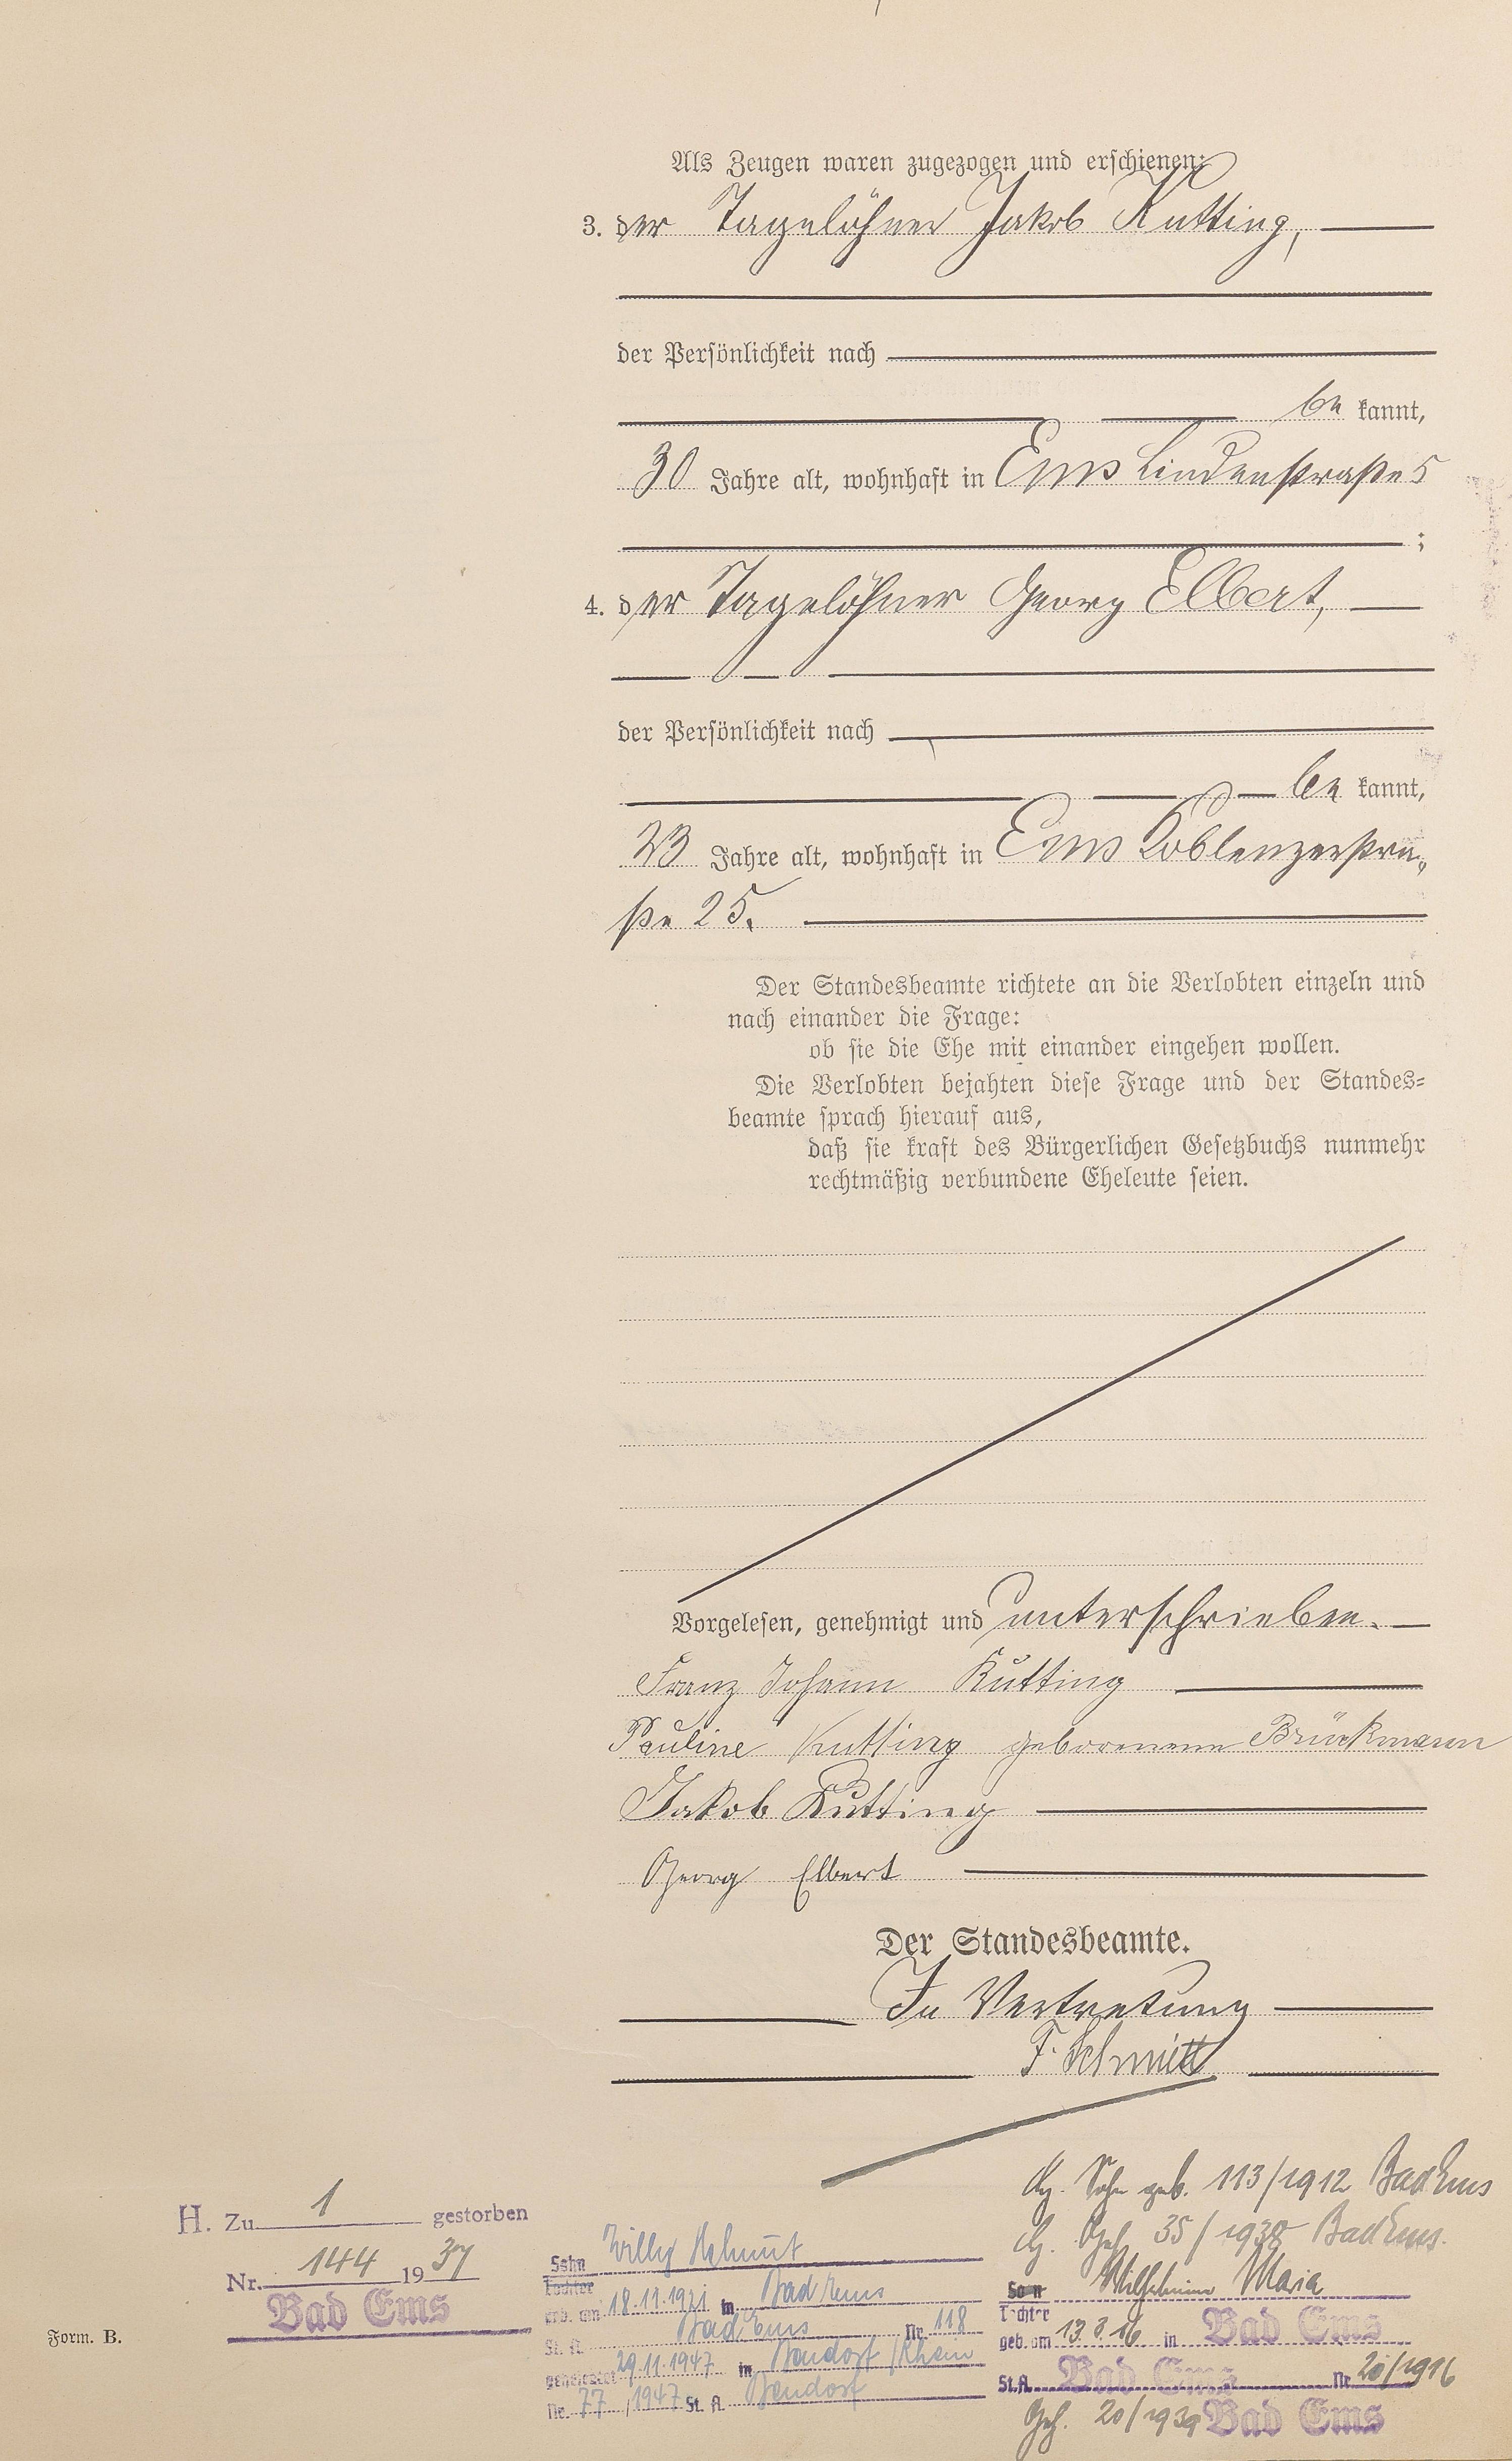 Als Zeugen waren zugezogen und erschienen:
3. der Tagelöhner Jakob Kutting,
der Persönlichkeit nach
be kannt,
30 Jahre alt, wohnhaft in Ems Lindenstraße 5
;
4. der Tagelöhner Georg Elbert,
der Persönlichkeit nach
be kannt,
23 Jahre alt, wohnhaft in Ems Koblenzerstra-
ße 25.
Der Standesbeamte richtete an die Verlobten einzeln und
nach einander die Frage:
ob sie die Ehe mit einander eingehen wollen.
Die Verlobten bejahten diese Frage und der Standes-
beamte sprach hierauf aus,
daß sie kraft des Bürgerlichen Gesetzbuchs nunmehr
rechtmäßig verbundene Eheleute seien.
Vorgelesen, genehmigt und unterschrieben.
Franz Johann Kutting
Pauline Kutting geborenene Brückmann
Jakob Kutting
Georg Elbert
Der Standesbeamte.
In Vertretung
F. Schmitt
Sohn geb. 113/1912 Bad Ems
35/1938 Bad Ems.
H. Zu 1 gestorben
Nr. 144 1937
Bad Ems
Form. B.
Sohn Willy Helmut
Tochter
geb. am 18.11.1921 in Bad Ems
St. A. Bad Ems Nr. 118
geheiratet 29.11.1947 in Bendorf/Rhein
Nr. 77/1947 St. A. Bendorf
Sohn Wilhelmine Maria
Tochter
geb. am 13.3.16 in Bad Ems
St.A. Bad Ems Nr 20/1916
Geh. 20/1939 Bad Ems